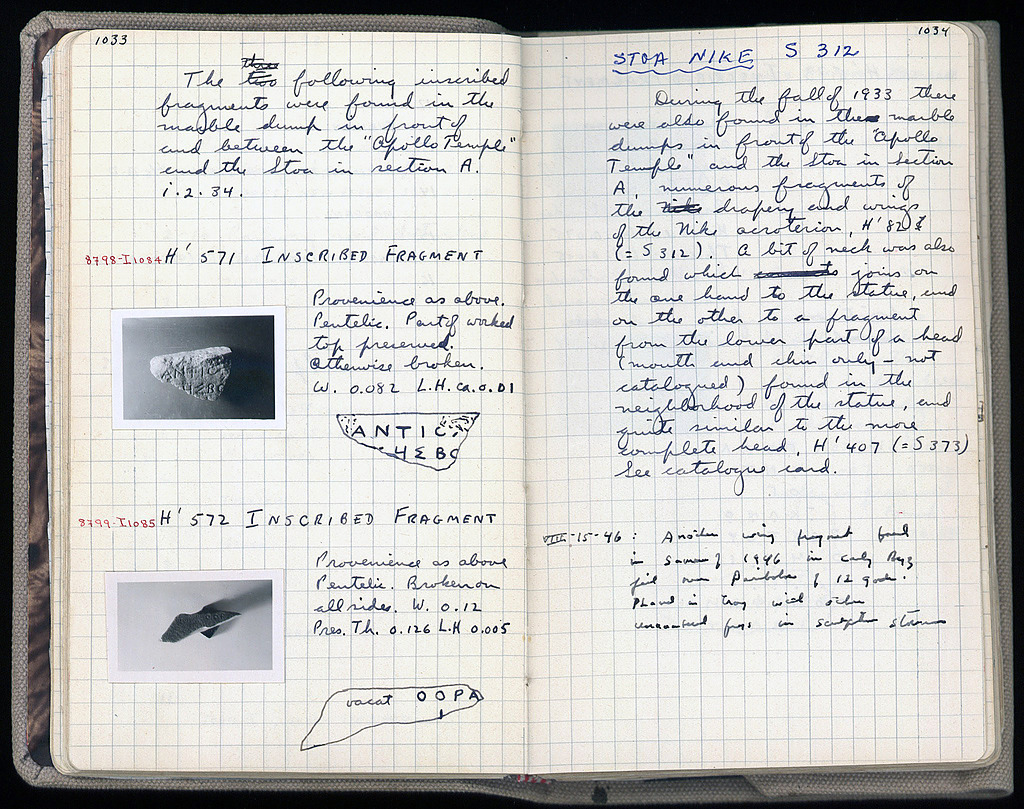 1033
The three two following inscribed
fragments were found in the
marble dump in front of
and between the "Apollo Temple"
and the Stoa in section A.
1.2.34.
8798-I1084 H' 571 INSCRIBED FRAGMENT
Provenience as above.
Pentelic. Part of worked
top preserved.
Otherwise broken.
W. 0.082 L.H. ca. 0.01
ANTIC
ΗΣΒΟ
8799-I1085 H' 572 INSCRIBED FRAGMENT
Provenience as above
Pentelic. Broken on
all sides. W. 0.12
Pres. Th. 0.126 L.H 0.005
vacat OOPA
1034
STOA NIKE S 312
During the fall of 1933 there
were also found in the marble
dumps in front of the "Apollo
Temple" and the Stoa in section
A, numerous fragments of
the Nike drapery and wings
of the Nike acroterion, H' 82
(= S 312). A bit of neck was also
found which joins on
the one hand to the statue, and
on the other to a fragment
from the lower part of a head
(mouth and chin only – not
catalogued) found in the
neighborhood of the statue, and
quite similar to the more
complete head, H' 407 (= S 373)
See catalogue card.
VIII-15-46: Another wing fragment found
in Summer of 1946 in early Byz
fill over Peribolos of 12 gods.
Placed in tray with other
uncatalogued frags in sculpture storeroom